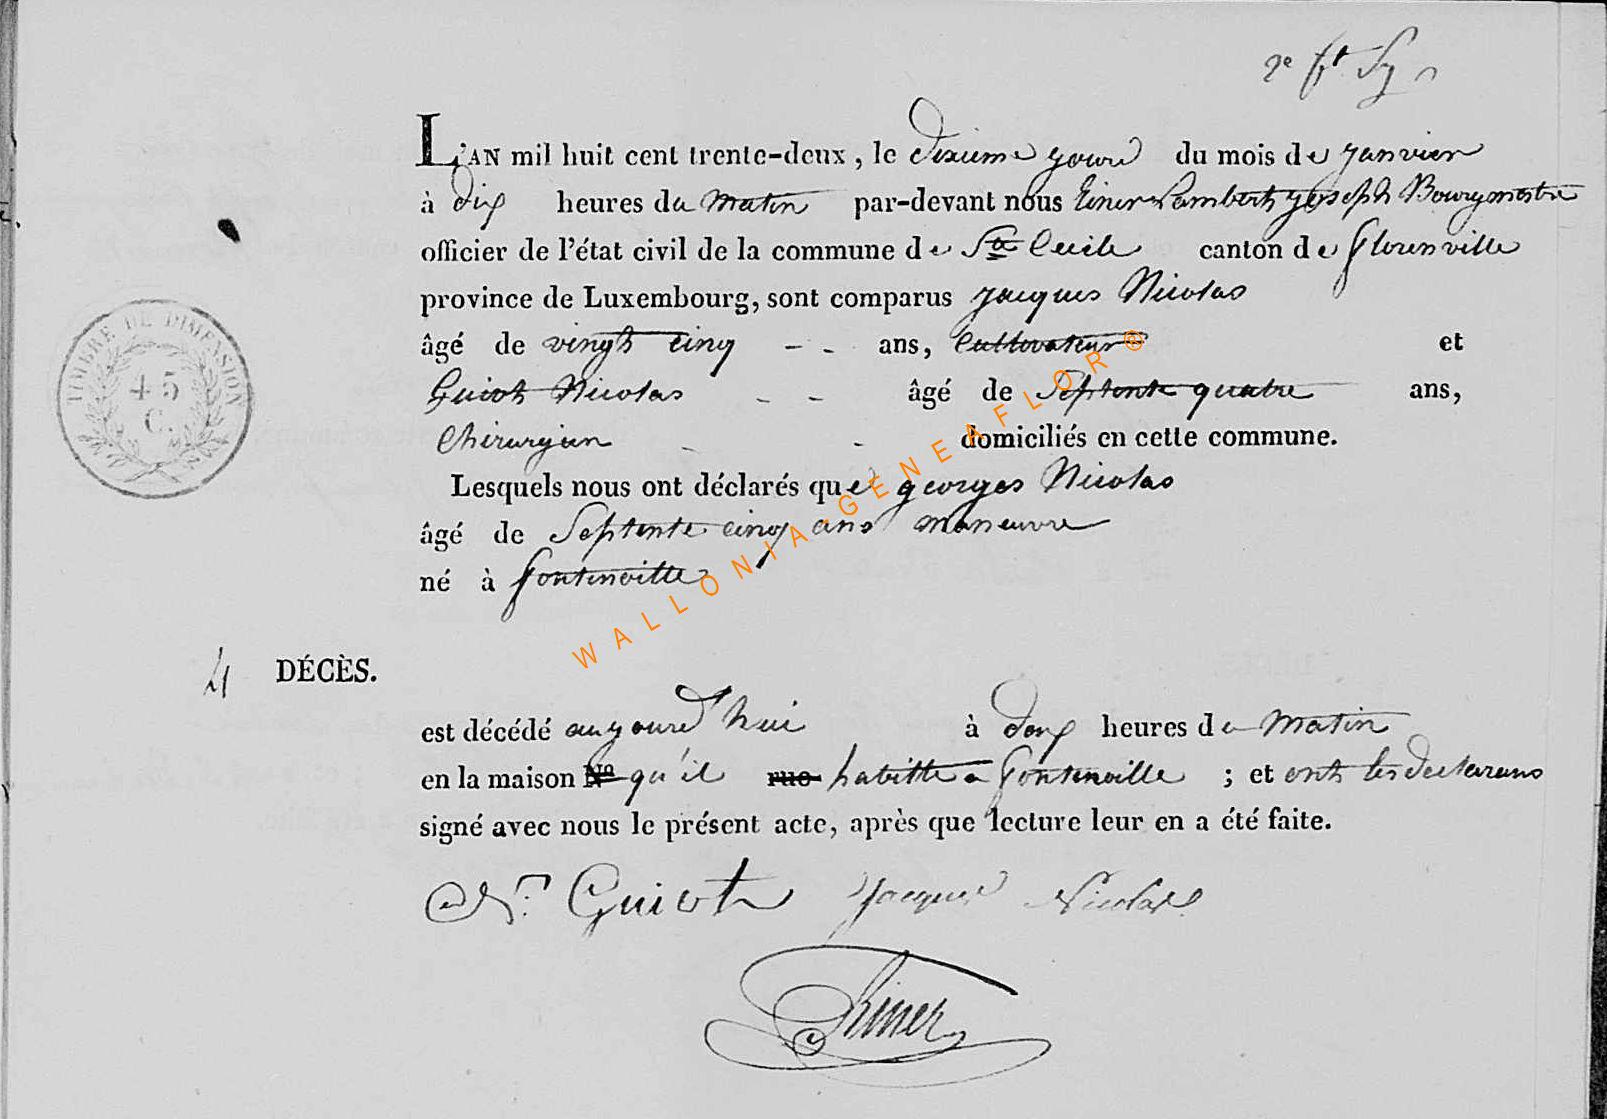 2e ft
L'AN mil huit cent trente-deux, le dixieme jour du mois de janvier
à dix heures du matin par-devant nous Lambert joseph Bourgmestre
officier de l'état civil de la commune de Ste Cecile canton de florenville
province de Luxembourg, sont comparus jacques Nicolas
âgé de vingt cinq - - ans, Cultivateur et
Guiot Nicolas - - âgé de Septente quatre ans,
Chirurgien - - domiciliés en cette commune.
Lesquels nous ont déclarés que georges Nicolas
âgé de Septente cinq ans maneuvre
né à fontenoille
4 DÉCÈS.
est décédé aujourd'hui à heures du Matin
en la maison No qu'il rue habitte a fontenoille ; et ont les declarans
signé avec nous le présent acte, après que lecture leur en a été faite.
N. Guiot Jacques Nicolas
TIMBRE DE DIMENSION
45
C.
WALLONIA-GENEAFLOR®